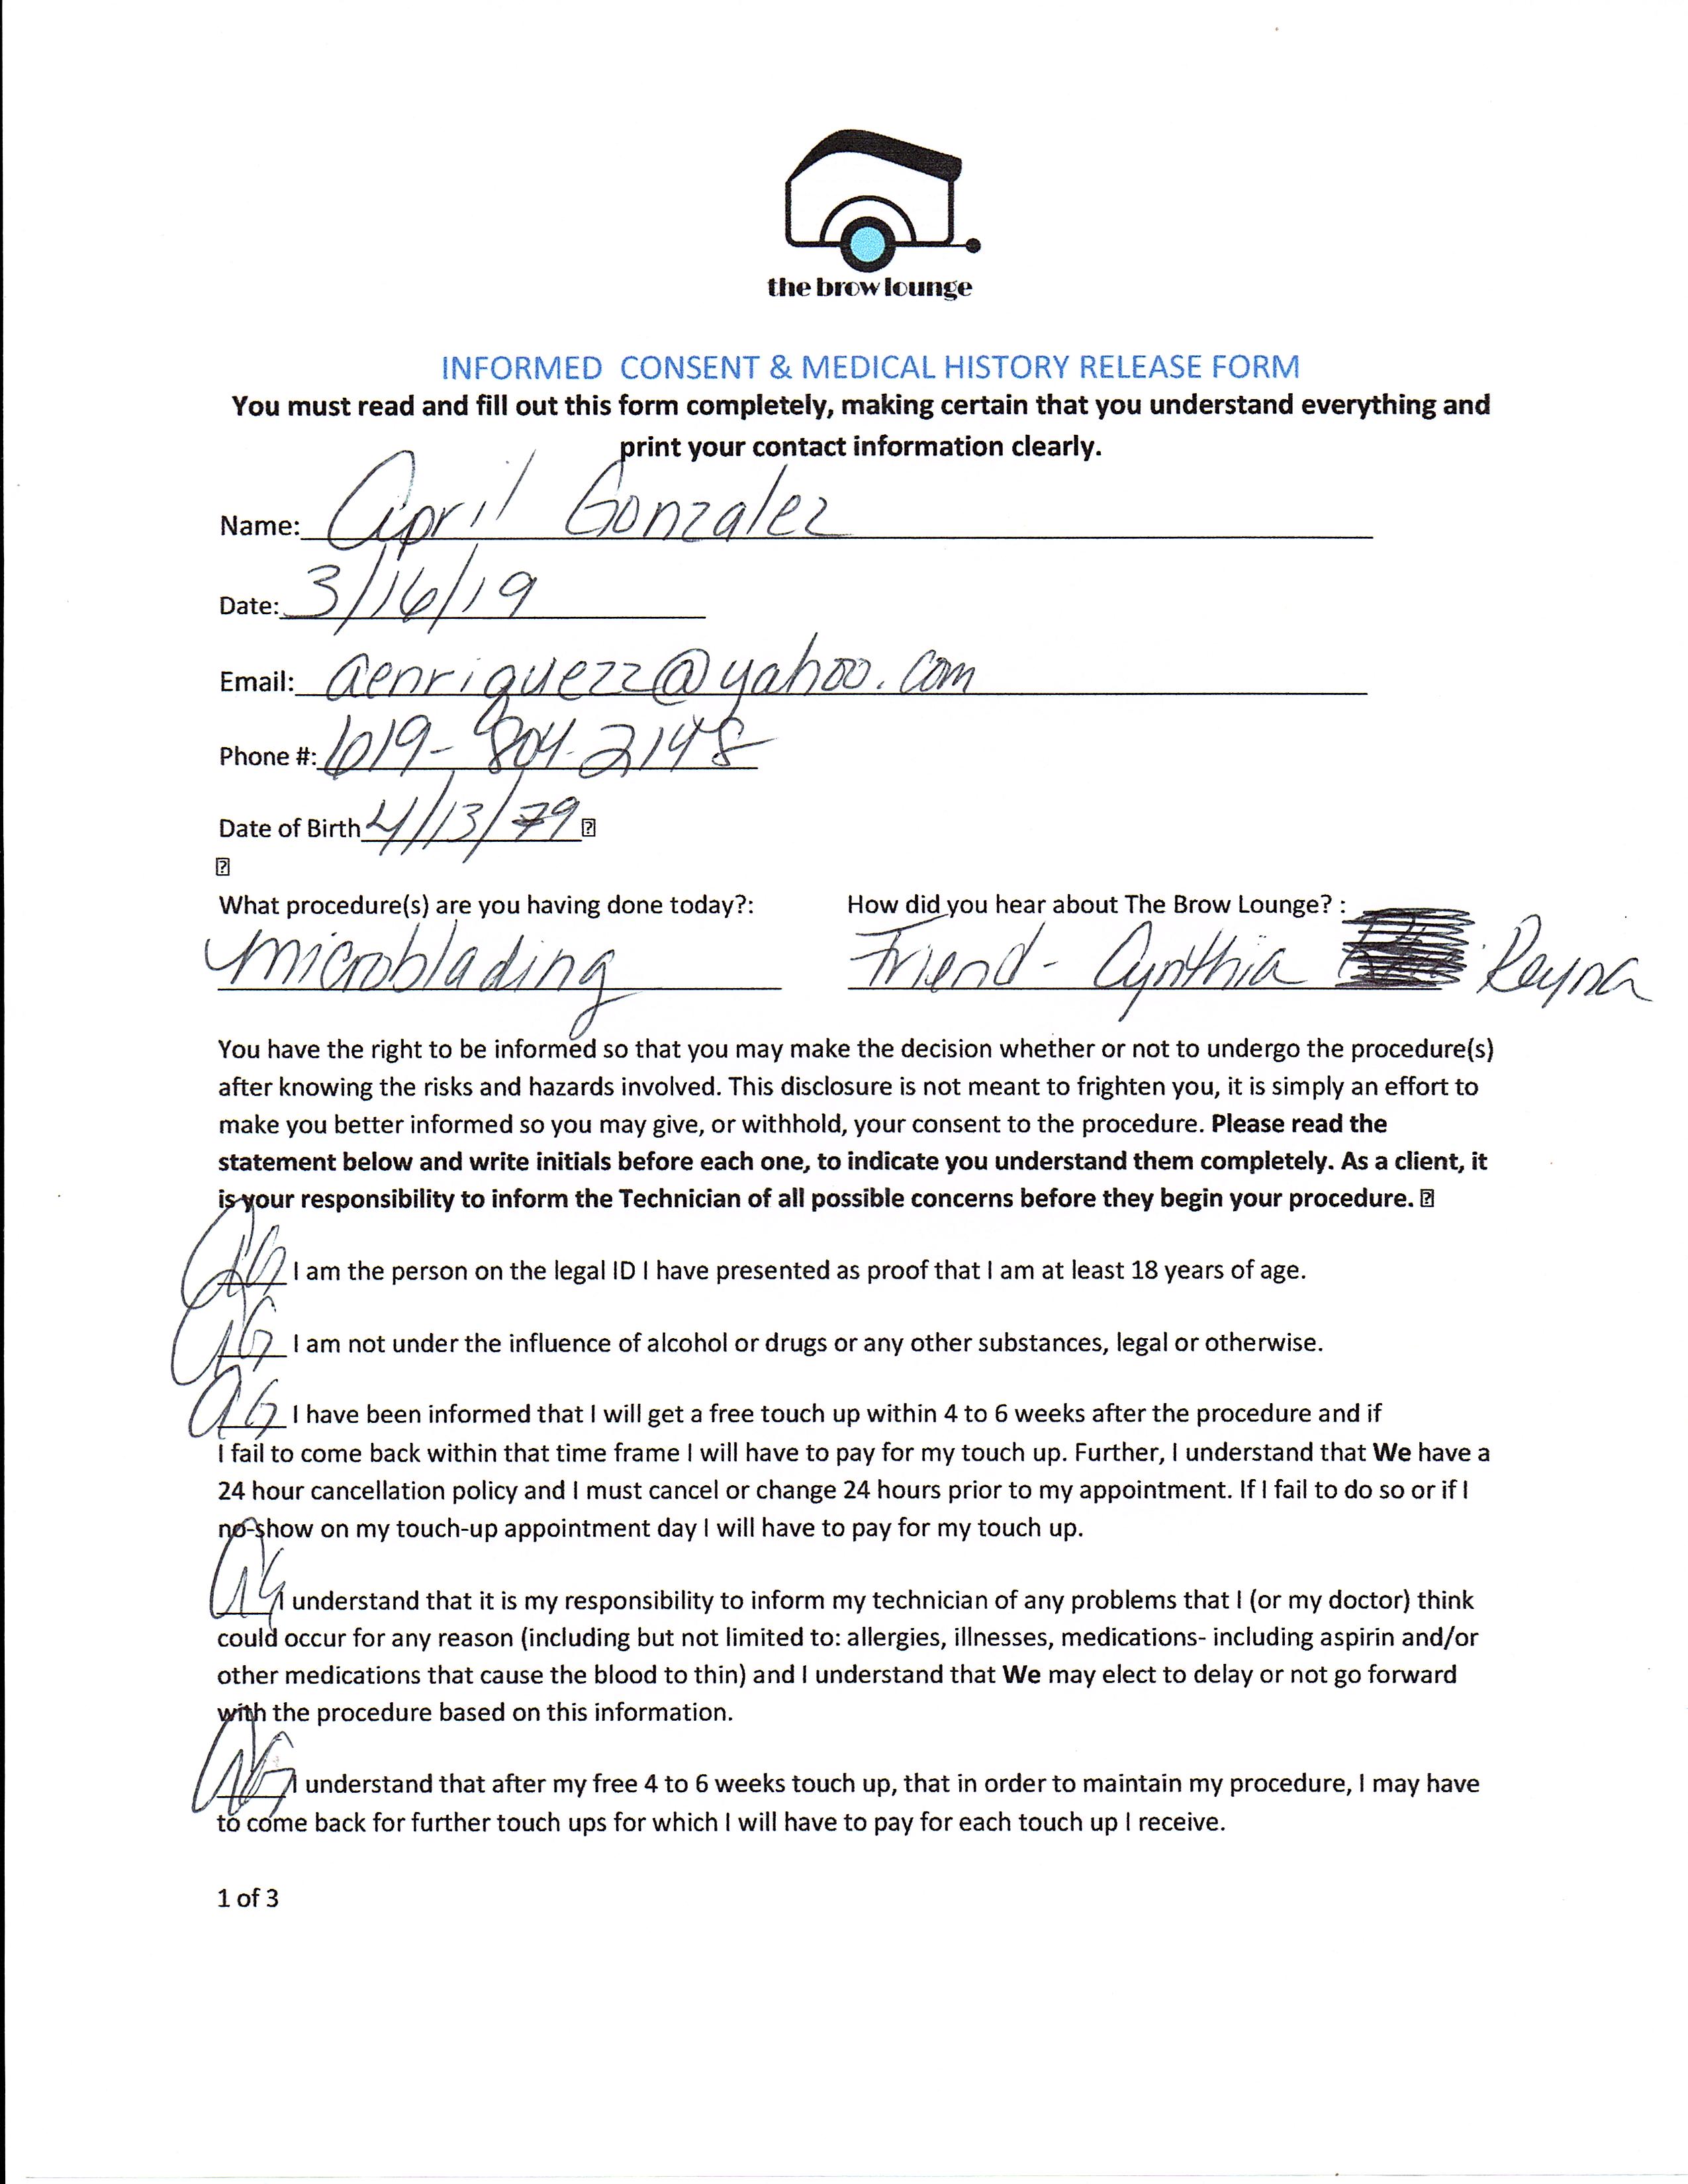 the brow lounge
INFORMED CONSENT & MEDICAL HISTORY RELEASE FORM
You must read and fill out this form completely, making certain that you understand everything and
print your contact information clearly.
Name: April Gonzalez
Date: 3/16/19
Email: aenriquezz@yahoo.com
Phone #: 619-804-2148
Date of Birth 4/13/79
What procedure(s) are you having done today?: How did you hear about The Brow Lounge? :
microblading Friend - Cynthia Reyna
You have the right to be informed so that you may make the decision whether or not to undergo the procedure(s)
after knowing the risks and hazards involved. This disclosure is not meant to frighten you, it is simply an effort to
make you better informed so you may give, or withhold, your consent to the procedure. Please read the
statement below and write initials before each one, to indicate you understand them completely. As a client, it
is your responsibility to inform the Technician of all possible concerns before they begin your procedure.
AG I am the person on the legal ID I have presented as proof that I am at least 18 years of age.
AG I am not under the influence of alcohol or drugs or any other substances, legal or otherwise.
AG I have been informed that I will get a free touch up within 4 to 6 weeks after the procedure and if
I fail to come back within that time frame I will have to pay for my touch up. Further, I understand that We have a
24 hour cancellation policy and I must cancel or change 24 hours prior to my appointment. If I fail to do so or if I
no-show on my touch-up appointment day I will have to pay for my touch up.
AG I understand that it is my responsibility to inform my technician of any problems that I (or my doctor) think
could occur for any reason (including but not limited to: allergies, illnesses, medications- including aspirin and/or
other medications that cause the blood to thin) and I understand that We may elect to delay or not go forward
with the procedure based on this information.
AG I understand that after my free 4 to 6 weeks touch up, that in order to maintain my procedure, I may have
to come back for further touch ups for which I will have to pay for each touch up I receive.
1 of 3